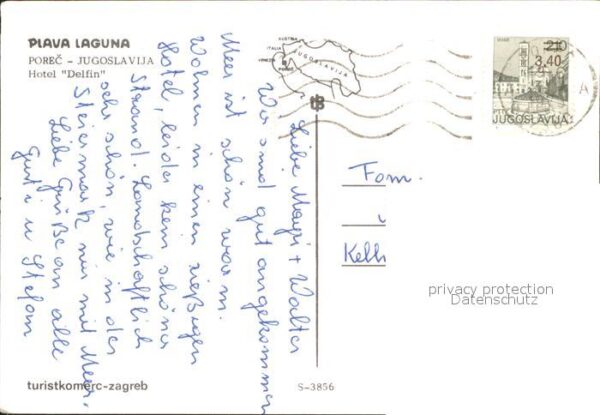 PLAVA LAGUNA
POREČ – JUGOSLAVIJA
Hotel "Delfin"
AUSTRIA
ITALIA
POREČ
JUGOSLAVIJA
210
3,40
JUGOSLAVIJA
A
Liebe Magi + Walter
Wir sind gut angekommen
Meer ist schön warm.
Wohnen in einen rießigen
Hotel, leider kein schöner
Strand. Landschaftlich
sehr schön, wie in der
Steiermark nur mit Meer.
Liebe Grüße an alle
Gusti u Stefan
Fam.
i
Kelh
privacy protection
Datenschutz
turistkomerc-zagreb
S-3856